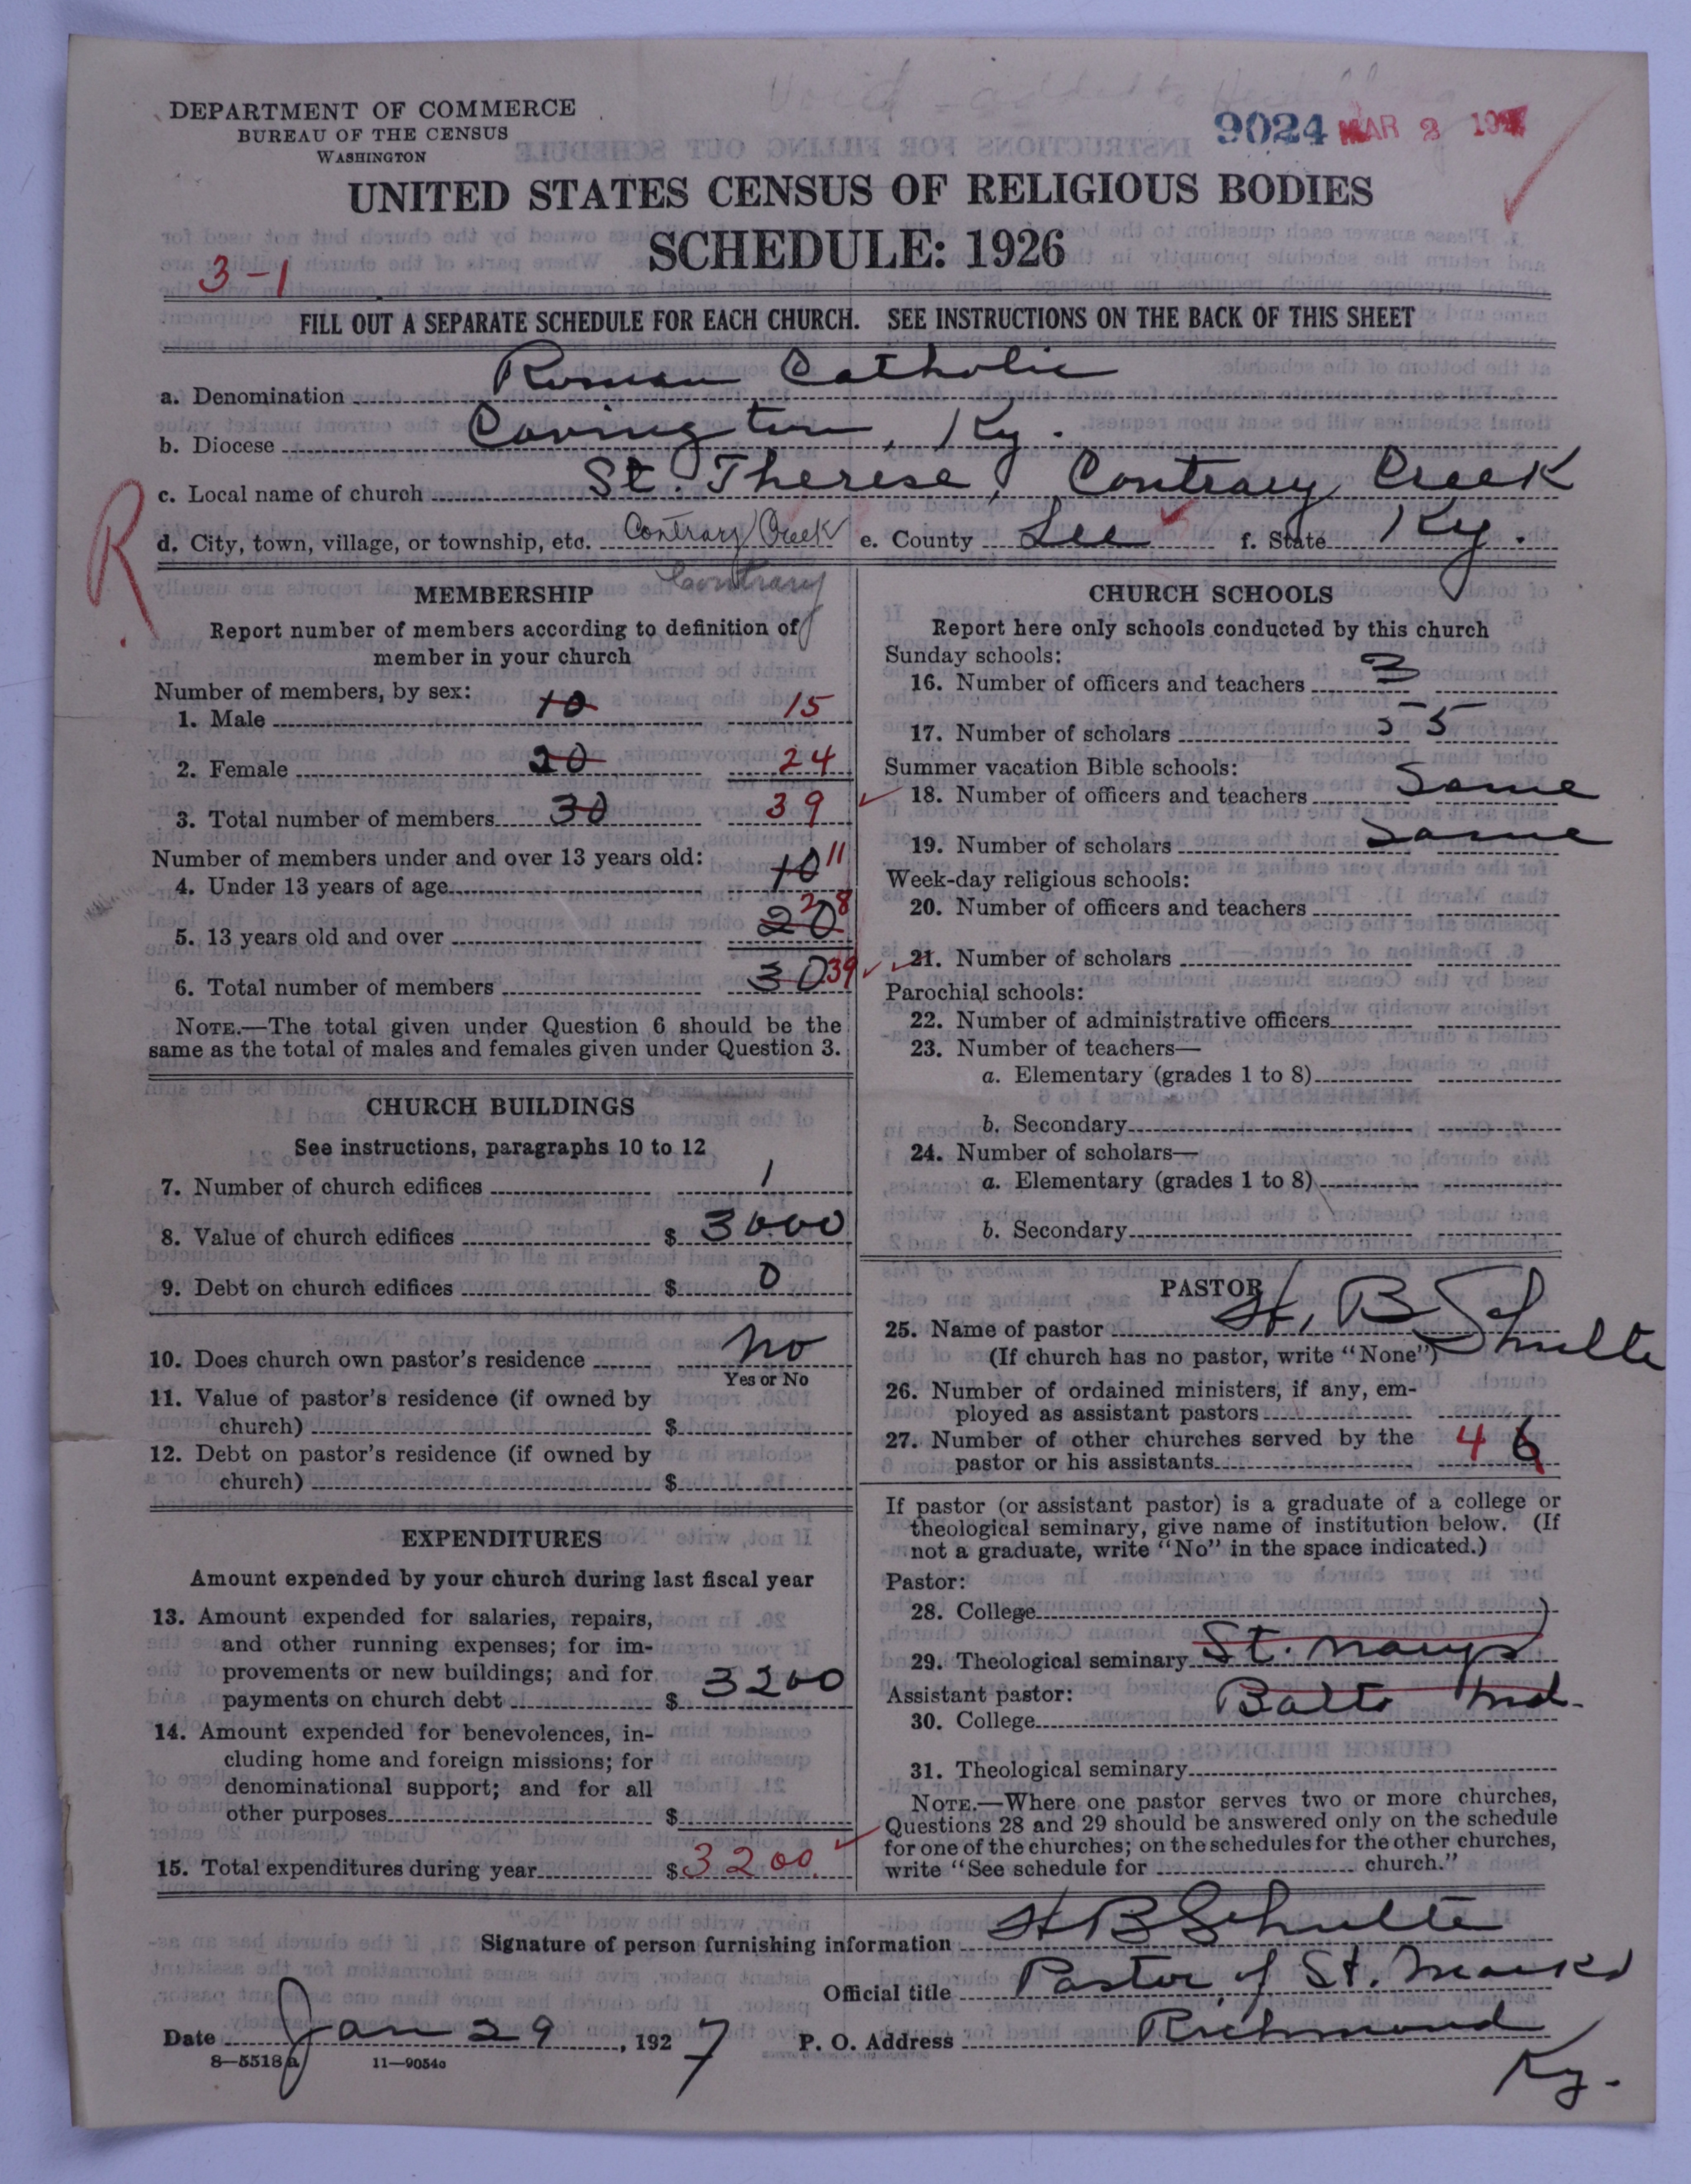 Void - added to
DEPARTMENT OF COMMERCE
BUREAU OF THE CENSUS
WASHINGTON
9024 MAR 2 192
UNITED STATES CENSUS OF RELIGIOUS BODIES
SCHEDULE: 1926
3-1
FILL OUT A SEPARATE SCHEDULE FOR EACH CHURCH. SEE INSTRUCTIONS ON THE BACK OF THIS SHEET
a. Denomination Roman Catholic
b. Diocese Covington, Ky.
c. Local name of church St. Therese, Contrary Creek
d. City, town, village, or township, etc. Contrary Creek e. County Lee f. State Ky.
Contrary
R
MEMBERSHIP
Report number of members according to definition of
member in your church
Number of members, by sex:
1. Male 10 15
2. Female 20 24
3. Total number of members 30 39
Number of members under and over 13 years old:
4. Under 13 years of age 10 11
5. 13 years old and over 20 28
6. Total number of members 30 39
NOTE.—The total given under Question 6 should be the
same as the total of males and females given under Question 3.
CHURCH BUILDINGS
See instructions, paragraphs 10 to 12
7. Number of church edifices 1
8. Value of church edifices $ 3000
9. Debt on church edifices $ 0
10. Does church own pastor's residence No
Yes or No
11. Value of pastor's residence (if owned by
church) $
12. Debt on pastor's residence (if owned by
church) $
EXPENDITURES
Amount expended by your church during last fiscal year
13. Amount expended for salaries, repairs,
and other running expenses; for im-
provements or new buildings; and for
payments on church debt $ 3200
14. Amount expended for benevolences, in-
cluding home and foreign missions; for
denominational support; and for all
other purposes $
15. Total expenditures during year $ 3200.
CHURCH SCHOOLS
Report here only schools conducted by this church
Sunday schools:
16. Number of officers and teachers 3
17. Number of scholars 55
Summer vacation Bible schools:
18. Number of officers and teachers Same
19. Number of scholars Same
Week-day religious schools:
20. Number of officers and teachers
21. Number of scholars
Parochial schools:
22. Number of administrative officers
23. Number of teachers—
a. Elementary (grades 1 to 8)
b. Secondary
24. Number of scholars—
a. Elementary (grades 1 to 8)
b. Secondary
PASTOR
25. Name of pastor H. B. Schulte
(If church has no pastor, write "None")
26. Number of ordained ministers, if any, em-
ployed as assistant pastors
27. Number of other churches served by the
pastor or his assistants 4 6
If pastor (or assistant pastor) is a graduate of a college or
theological seminary, give name of institution below. (If
not a graduate, write "No" in the space indicated.)
Pastor:
28. College
29. Theological seminary St. Marys
Assistant pastor: Balto Md.
30. College
31. Theological seminary
NOTE.—Where one pastor serves two or more churches,
Questions 28 and 29 should be answered only on the schedule
for one of the churches; on the schedules for the other churches,
write "See schedule for church."
Signature of person furnishing information H B Schulte
Official title Pastor of St. Marks
Date Jan 29, 1927 P. O. Address Richmond
Ky.
8—5518a 11—9054o